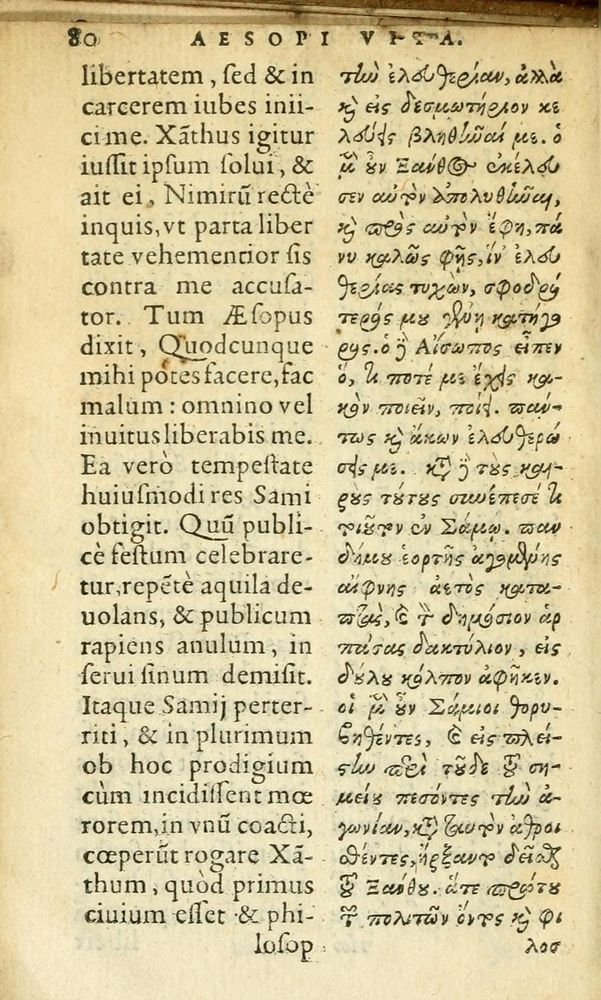 80 AESOPI VITA.
libertatem, ſed & in
carcerem iubes inii-
ci me. Xãthus igitur
iuſſit ipſum ſolui, &
ait ei, Nimirũ rectè
inquis, vt parta liber
tate vehementior ſis
contra me accuſa-
tor. Tum Æſopus
dixit, Quodcunque
mihi potes facere, fac
malum: omnino vel
inuitus liberabis me.
Ea verò tempeſtate
huiuſmodi res Sami
obtigit. Quũ publi-
cè feſtum celebrare-
tur, repẽtè aquila de-
uolans, & publicum
rapiens anulum, in
ſerui ſinum demiſit.
Itaque Samij perter-
riti, & in plurimum
ob hoc prodigium
cùm incidiſſent mœ
rorem, in vnũ coacti,
cœperũt rogare Xã-
thum, quòd primus
ciuium eſſet & phi-
loſop
τὴν ἐλευθερίαν, ἀλλὰ
καὶ εἰς δεσμωτήριον κε
λεύεις βληθῆναί με. ὁ
μὲν οὖν Ξάνθος ἐκέλευ
σεν αὐτὸν ἀπολυθῆναι,
καὶ πρὸς αὐτὸν ἔφη, πά
νυ καλῶς φῂς, ἵν' ἐλευ
θερίας τυχὼν, σφοδρό
τερός μου γένῃ κατήγο
ρος. ὁ δὲ Αἴσωπος εἶπεν
ὅ, τι ποτέ με ἔχεις κα-
κὸν ποιεῖν, ποίει. πάν-
τως καὶ ἄκων ἐλευθερώ
σεις με. κατὰ δὲ τοὺς και-
ροὺς τούτους συνέπεσέ τι
τοιοῦτον ἐν Σάμῳ. παν
δήμου ἑορτῆς ἀγομένης
αἴφνης ἀετὸς κατα-
πτὰς, καὶ τὸν δημόσιον ἁρ
πάσας δακτύλιον, εἰς
δούλου κόλπον ἀφῆκεν.
οἱ μὲν οὖν Σάμιοι θορυ-
βηθέντες, καὶ εἰς πλεί-
στην περὶ τοῦδε τοῦ ση-
μείου πεσόντες τὴν ἀ-
γωνίαν, κατὰ ταυτὸν ἀθροι
σθέντες, ἤρξαντο δεῖσθαι
τοῦ Ξάνθου. ἅτε πρώτου
τῶν πολιτῶν ὄντος καὶ φι
λοσ